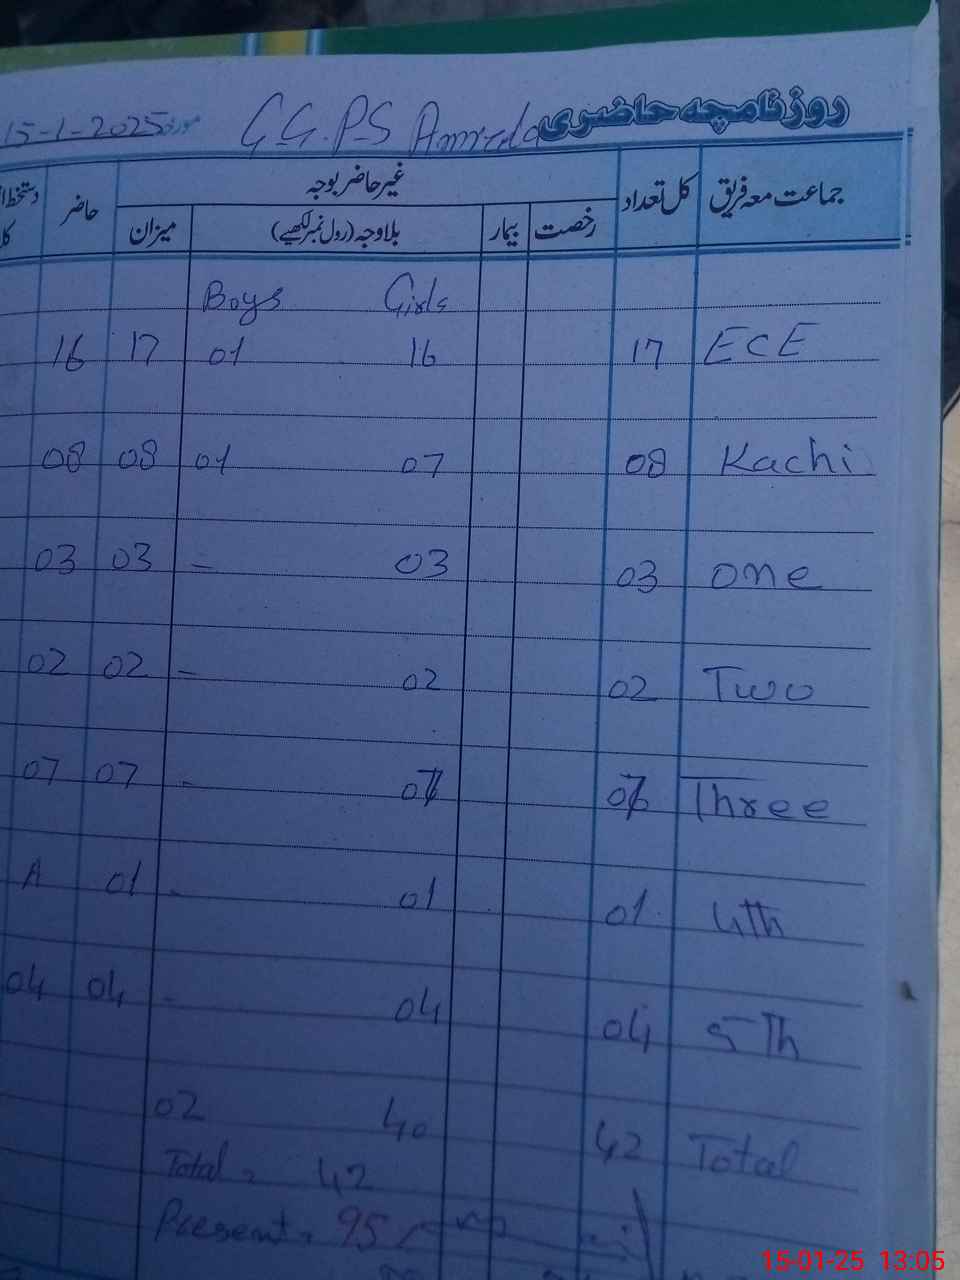 روزنامچہ حاضری G.G.P.S مورخہ 15-1-2025
جماعت معہ فریق کل تعداد غیر حاضر بوجہ حاضر
رخصت بیمار بلاوجہ (رول نمبر لکھیے) میزان
Boys Girls
16 17 01 16 17 ECE
08 08 01 07 08 Kachi
03 03 - 03 03 one
02 02 - 02 02 Two
07 07 - Three
A 01 - 01 01 4th
04 04 - 04 04 5Th
02 40 42 Total
Total = 42
Present = 95
15-01-25 13:05